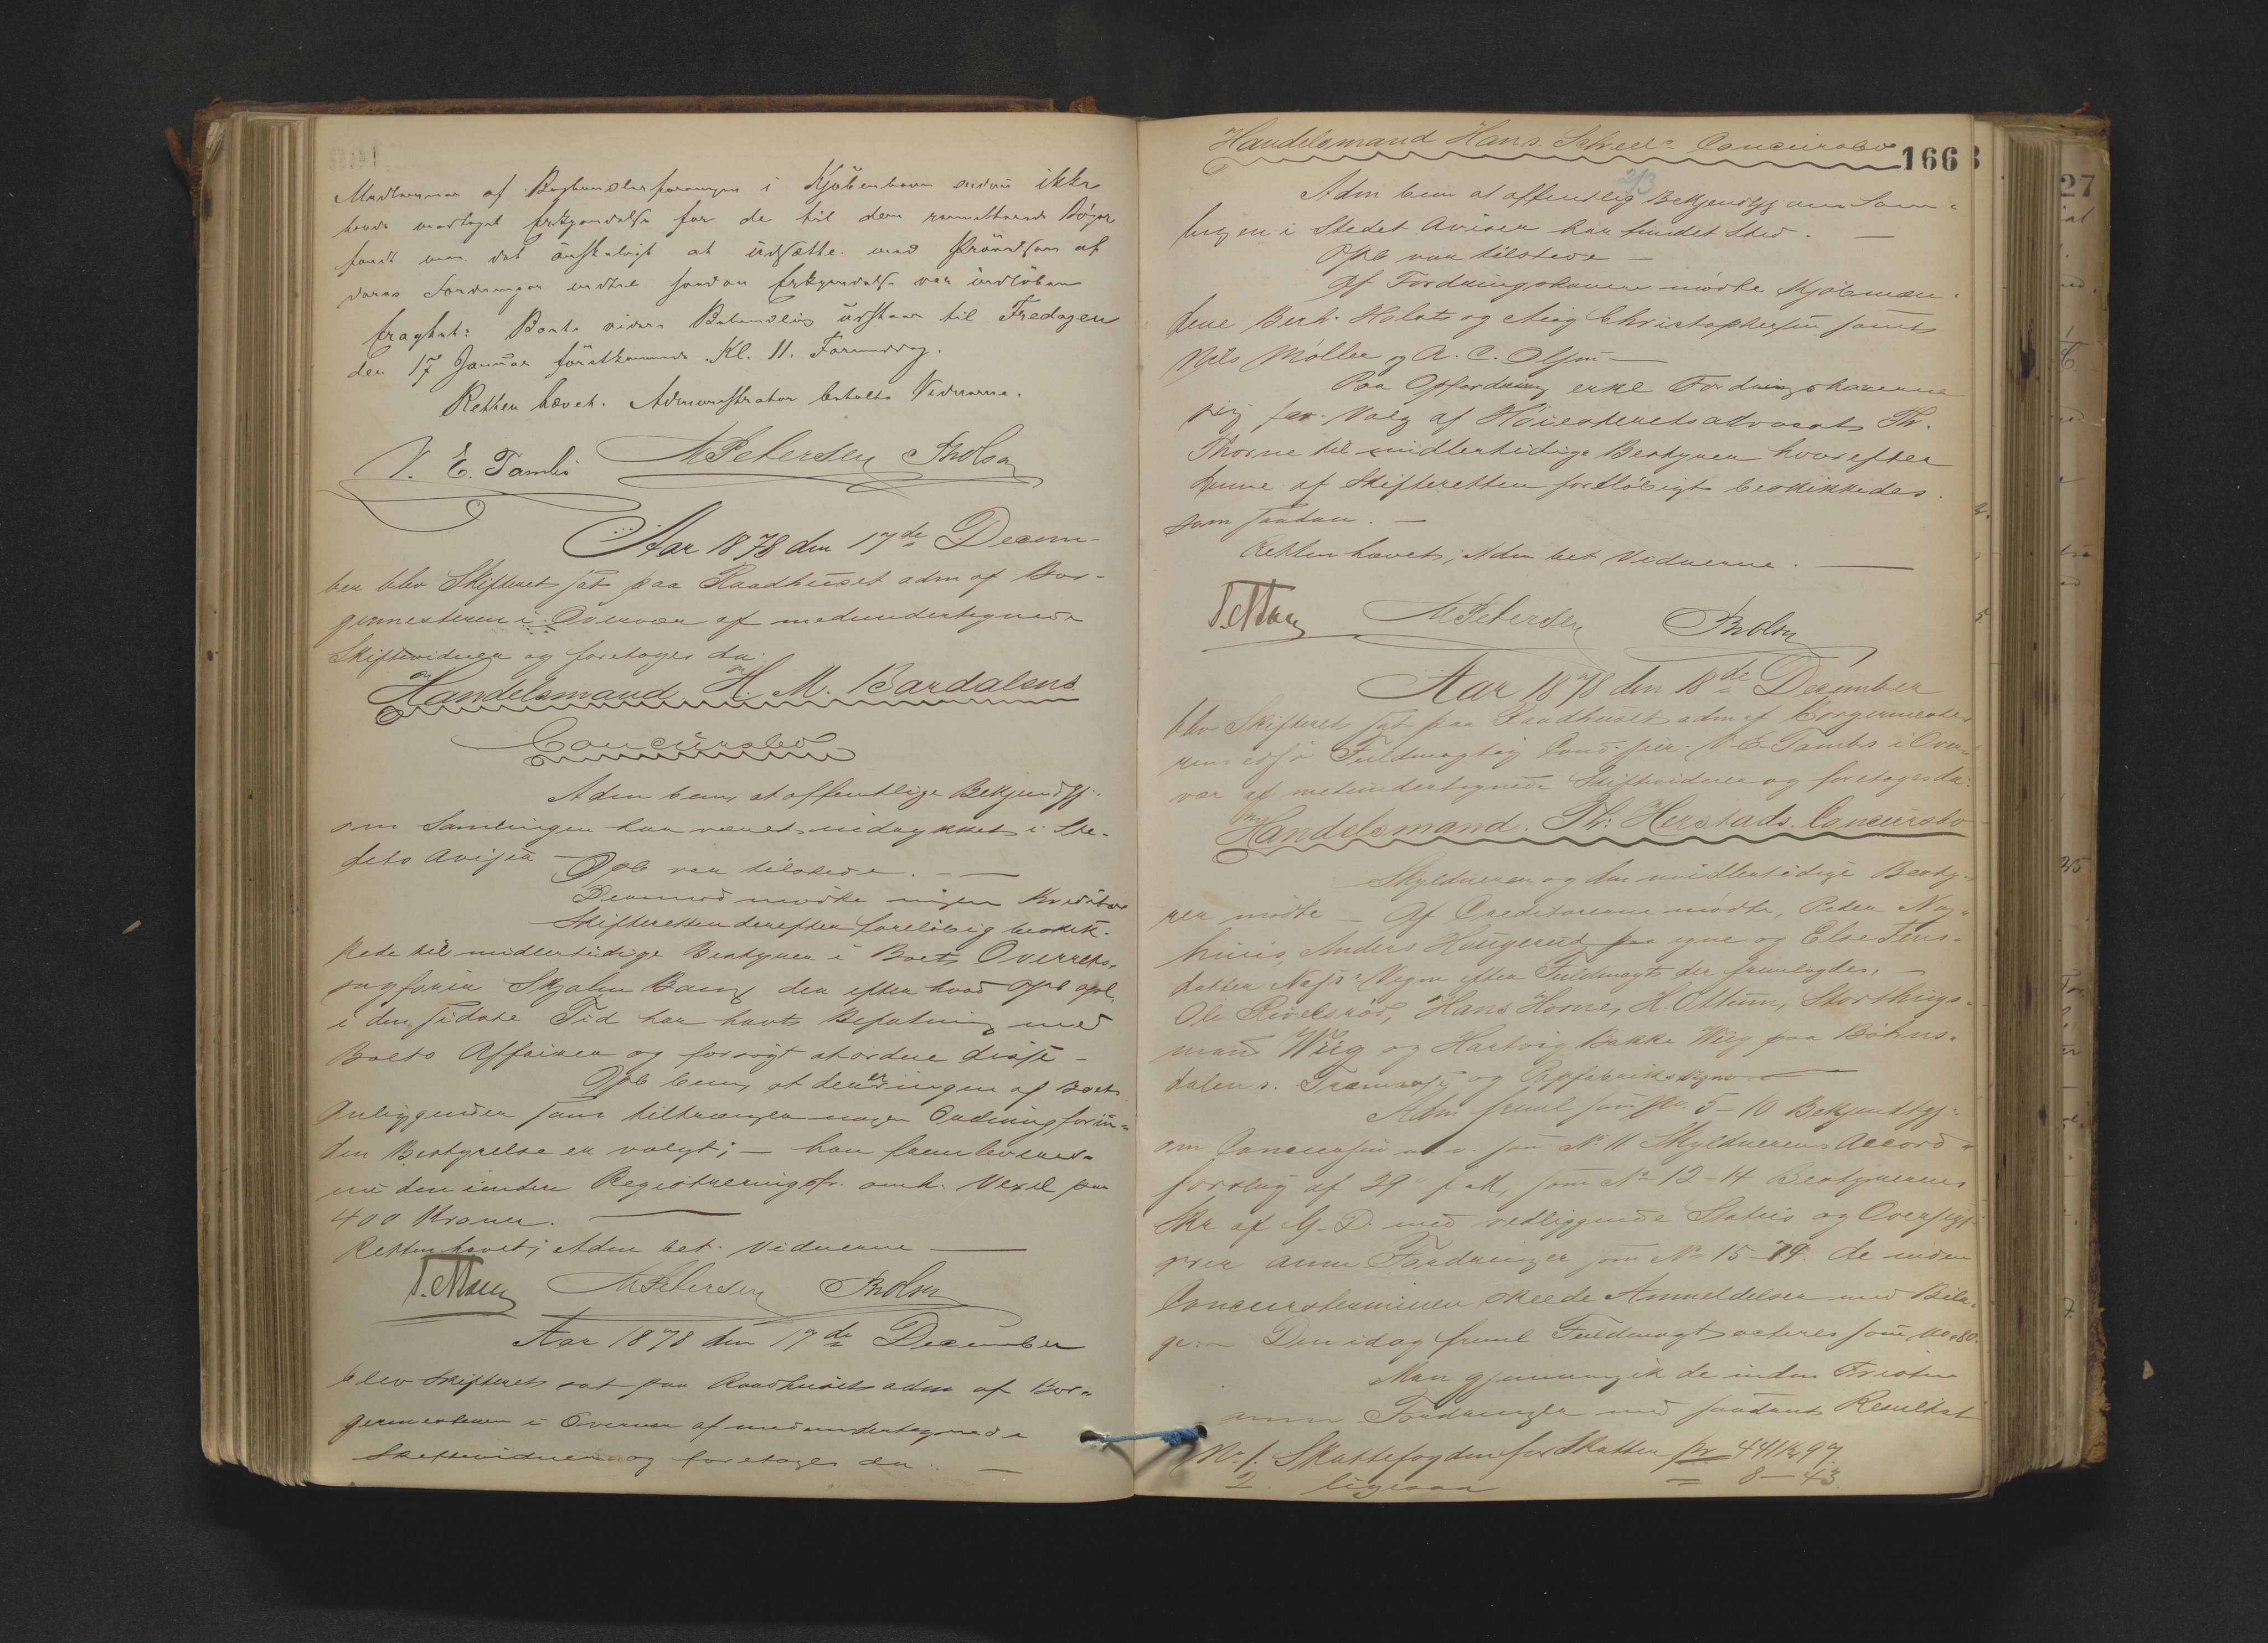 Medlemmer af Boghandlerforeningen i Kjøbenhavn endnu ikke
havde modtaget Erkjendelse for de til dem remitterede Bøger
fandt man det ønskeligt at udsætte med Prøvelsen af
deres Fordringer indtil saadan Erkjendelse var indløben
fragtet: Boets videre Behandling udstaar til Fredagen
den 17 Januar førstkommende Kl. 11. Formiddag.
Retten hævet. Administrator betalte Vidnerne.
V. E. Tambs M Petersen
Aar 1878 den 17de Decem-
ber blev Skifteret sat paa Raadhuset adm af Bor-
germesteren i Overvær af medundertegnede
Skiftevidner og foretoges da:
Handelsmand H. M. Bardalens
Concursbo
Adm bem, at offentlige Bekjendtgj.
om Samlingen har været indrykket i Ste-
dets Aviser
Opb var tilstede. —
Derimod mødte ingen Kreditor
Skifteretten derefter foreløbig beskik-
kede til midlertidige Bestyrer i Boet Overrets-
sagfører Skjalm Bang der efter hvad Opb opl.
i den sidste Tid har havt Befatning med
Boets Affairer og forsøgt at ordne disse –
Opb bem, at der er ingen af Boets
Anliggender som tiltrænger nogen Ordning forin-
den Bestyrelse er valgt; – han fremleverede
nu den under Registreringsfr. omh. Vexel paa
400 Kroner. —
Retten hævet; Adm bet. Vidnerne —
M Petersen
Aar 1878 den 17de December
blev Skifteret sat paa Raadhuset adm af Bor-
germesteren i Overvær af medundertegnede
Skiftevidner og foretoges da: —
Handelsmand Hans Concursbo
166
2/3
Adm bem at offentlig Bekjendtgj om Sam-
lingen i Stedet Aviser har fundet Sted. —
Opb var tilstede —
Af Fordringshavere mødte Kjøbmæn-
dene Berh. Holst og Christophersen samt
Nils Møller og A. C. Olsen —
Paa Opfordring erkl Fordringshaverne
sig for Valg af Høiesteretsadvocat Th.
Thorne til midlertidige Bestyrer hvorefter
denne af Skifteretten foreløbigt beskikkedes
som saadan. —
Retten hævet, Adm bet Vidnerne. —
M Petersen
Aar 1878 den 18de December
blev Skifteret sat paa Raadhuset adm af Borgermeste-
rens edsv Fuldmægtig Cand. jur. V. E. Tambs i Over-
vær af medundertegnede Skiftevidner og foretoges da:
Handelsmand Th. Herstads Concursbo
Skyldneren og den midlertidige Besty-
rer mødte – Af Creditorerne mødte, Peder
Anders Haugerud paa egne og Else Jens-
datter Vegne efter Fuldmagt der fremlagdes, –
Ole Hans Horne, H. Ottum, Storthings-
mand Wiig og Hartvig Bakke Wiig paa Bøhns-
dalens Træmasse og Papfabriks Vegne —
Adm freml som No 5–10 Bekjendtgj.
om Concursen som No 11 Skyldnerens Accord-
forslag af 29 f M, som No 12–14 Bestyrerens
Skr af G. D. med vedliggende Status og Oversigt
over anm Fordringer som No 15–79 de inden
Concursterminen skeede Anmeldelser med Bila-
ge. – Den idag freml Fuldmagt acteres som No 80.
Man gjennemgik de inden Fristen
anm. Fordringer med saadant Resultat
No 1. Skattefogden for Skatter pr 441 Kr 97
2. ligesaa = 8 – 43.